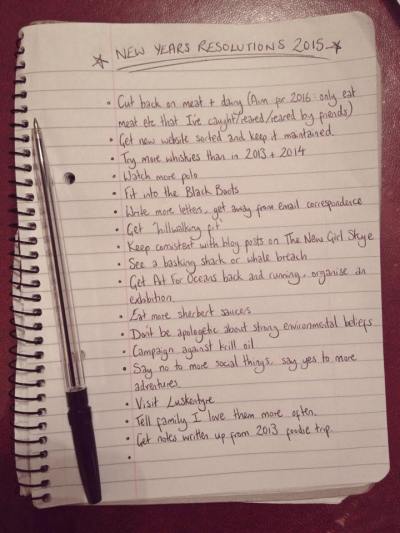 ☆ NEW YEARS RESOLUTIONS 2015 ☆
• Cut back on meat + dairy (Aim for 2016: only eat
meat etc that I've caught/reared/reared by friends)
• Get new website sorted and keep it maintained.
• Try more whiskies than in 2013 + 2014
• Watch more polo
• Fit into the Black Boots
• Write more letters, get away from email correspondence
• Get 'hillwalking fit'
• Keep consistent with blog posts on The New Girl Skye
• See a basking shark or whale breach
• Get Art For Oceans back and running, organise an
exhibition.
• Eat more sherbert saucers
• Don't be apologetic about strong environmental beliefs
• Campaign against krill oil
• Say no to more social things, say yes to more
adventures.
• Visit Luskentyre
• Tell family I love them more often.
• Get notes written up from 2013 foodie trip.
•